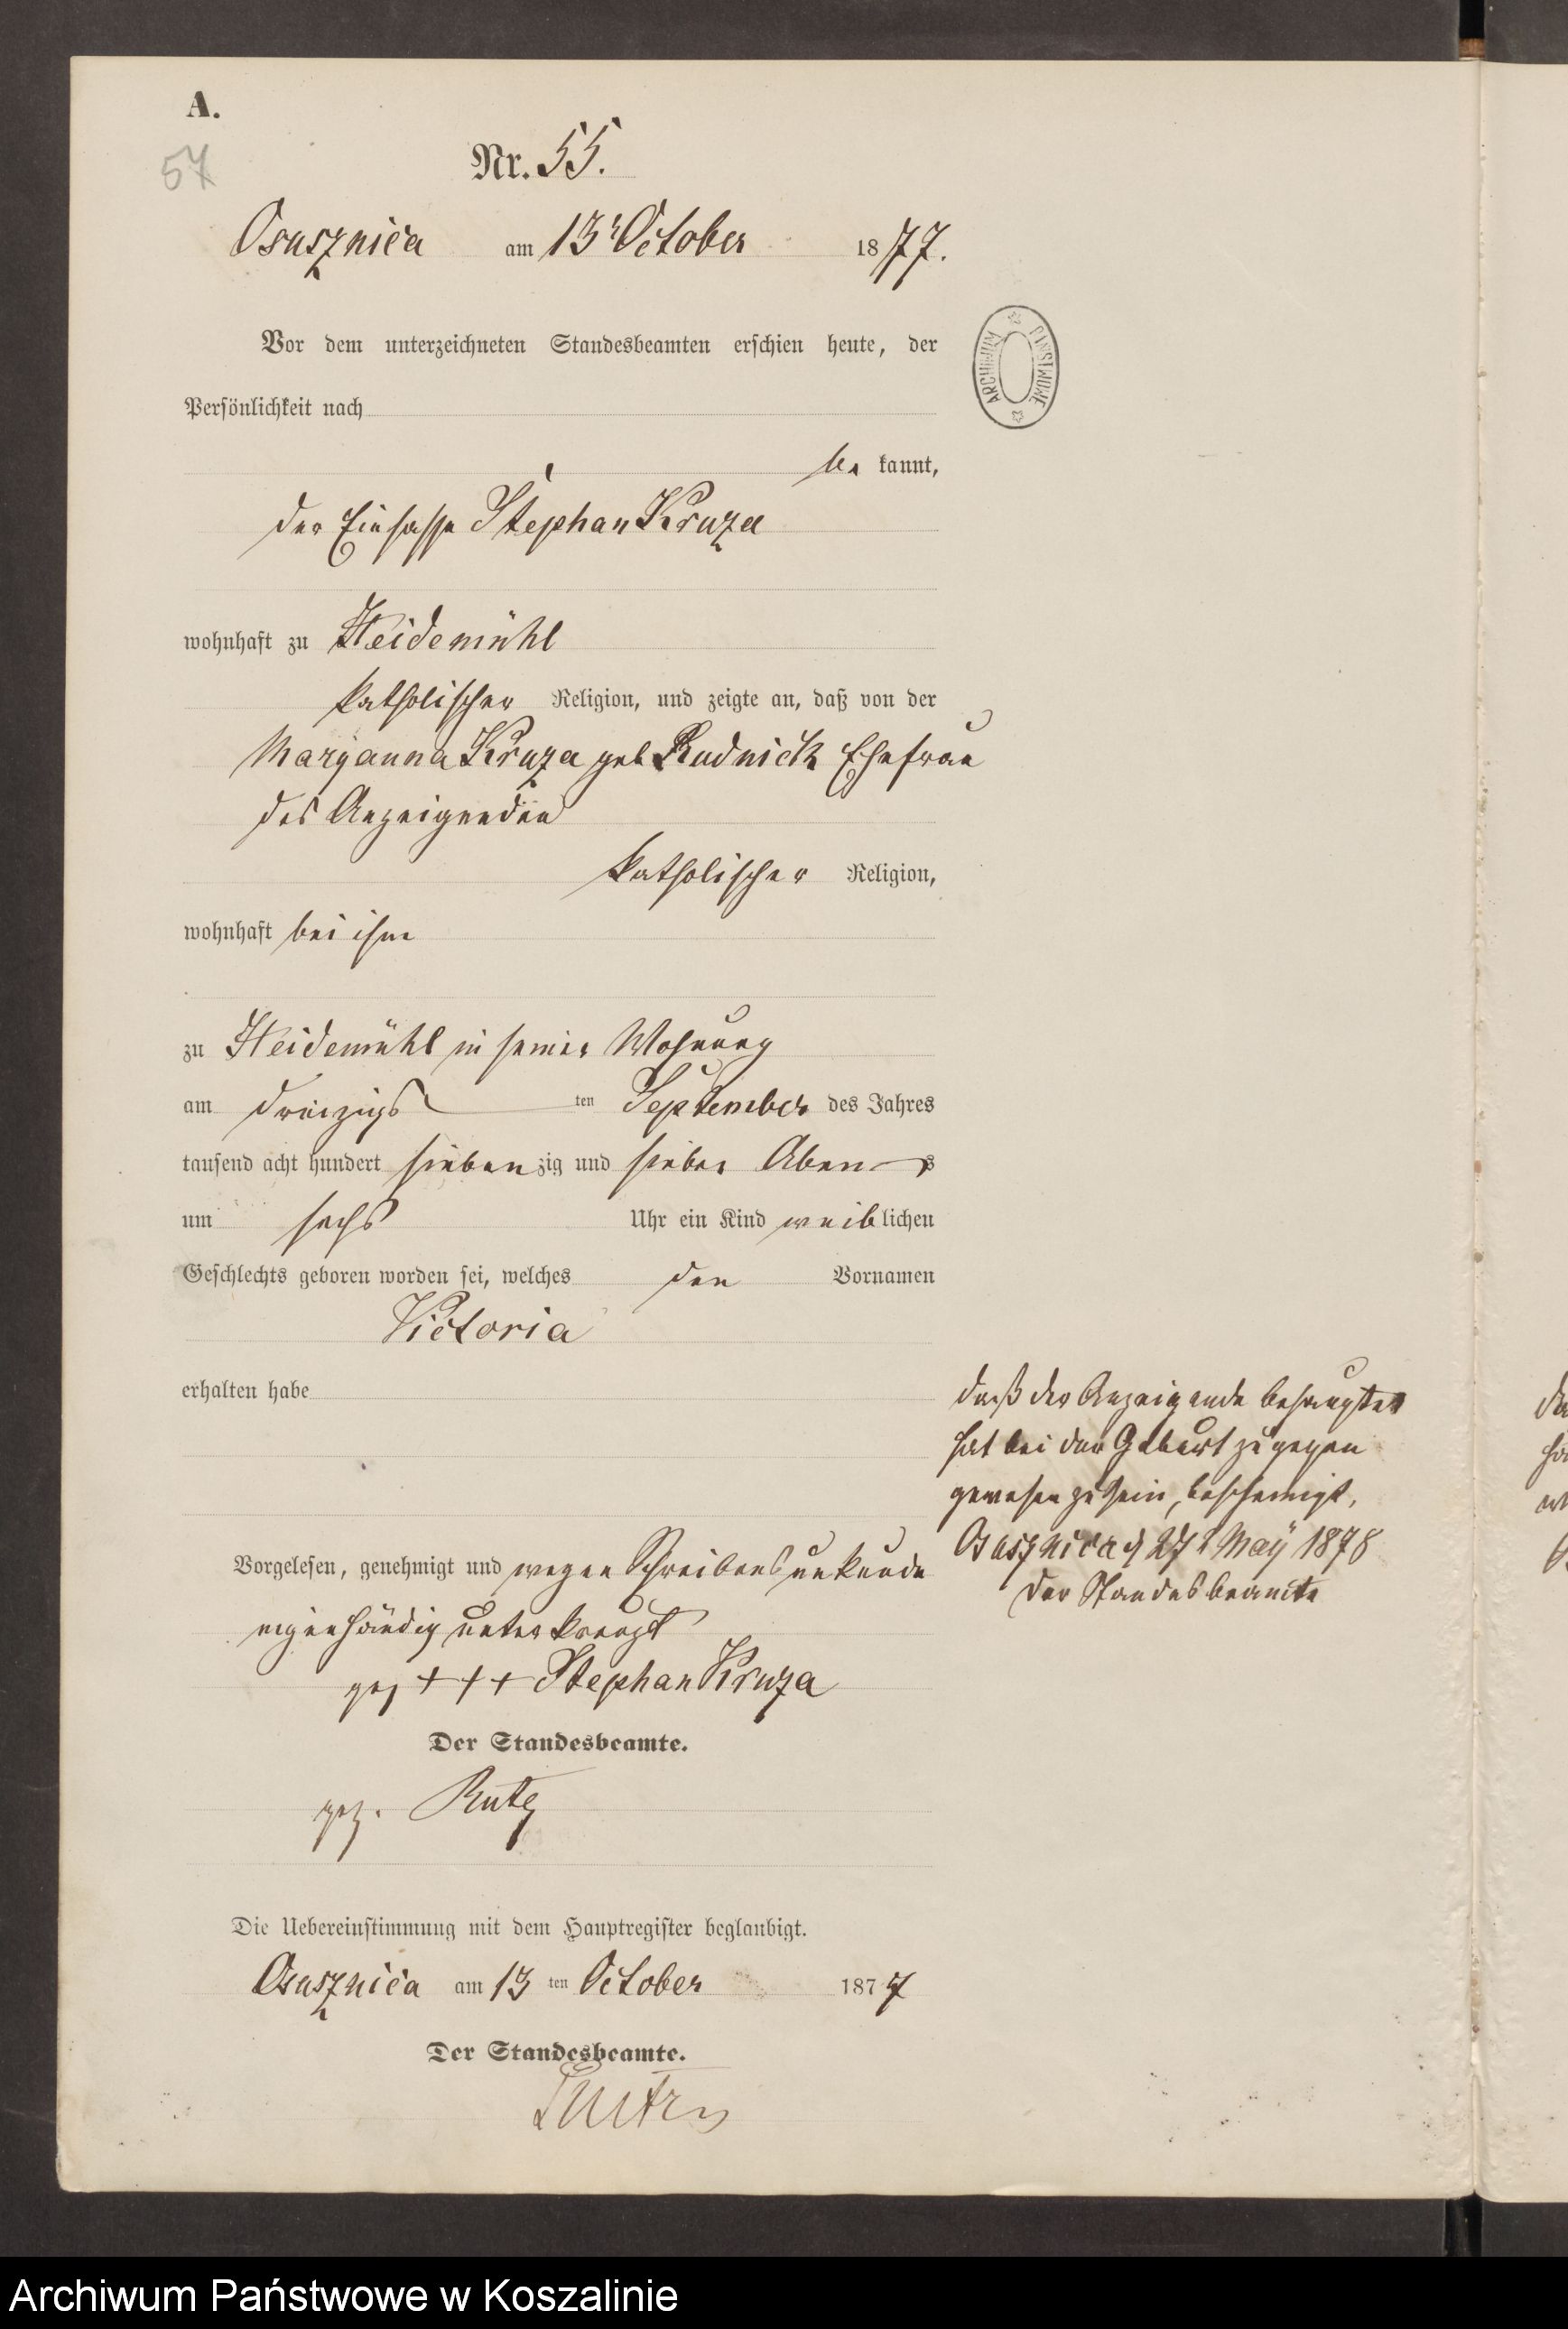 A.
57
Nr. 55.
Osusznica am 13t October 1877.
Vor dem unterzeichneten Standesbeamten erschien heute, der
Persönlichkeit nach
be kannt,
der Einsasse Stephan Kruza
wohnhaft zu Heidemühl
katholischer Religion, und zeigte an, daß von der
Maryanna Kruza geb Rudnick Ehefrau
des Anzeigenden
katholischer Religion,
wohnhaft bei ihm
zu Heidemühl in seiner Wohnung
am dreizigs ten September des Jahres
tausend acht hundert siebenzig und sieben Abends
um sechs Uhr ein Kind weiblichen
Geschlechts geboren worden sei, welches den Vornamen
Victoria
erhalten habe
daß der Anzeigende behauptet
hat bei der Geburt zugegen
gewesen zu sein, bescheinigt,
Osusznica d 27t May 1878
Der Standesbeamte
Vorgelesen, genehmigt und wegen Schreibensunkunde
eigenhändig unterkreuzt
gez +++ Stephan Kruza
Der Standesbeamte.
gez. Rutz
Die Uebereinstimmung mit dem Hauptregister beglaubigt.
Osusznica am 13 ten October 1877
Der Standesbeamte.
ARCHIWUM PAŃSTWOWE
Archiwum Państwowe w Koszalinie